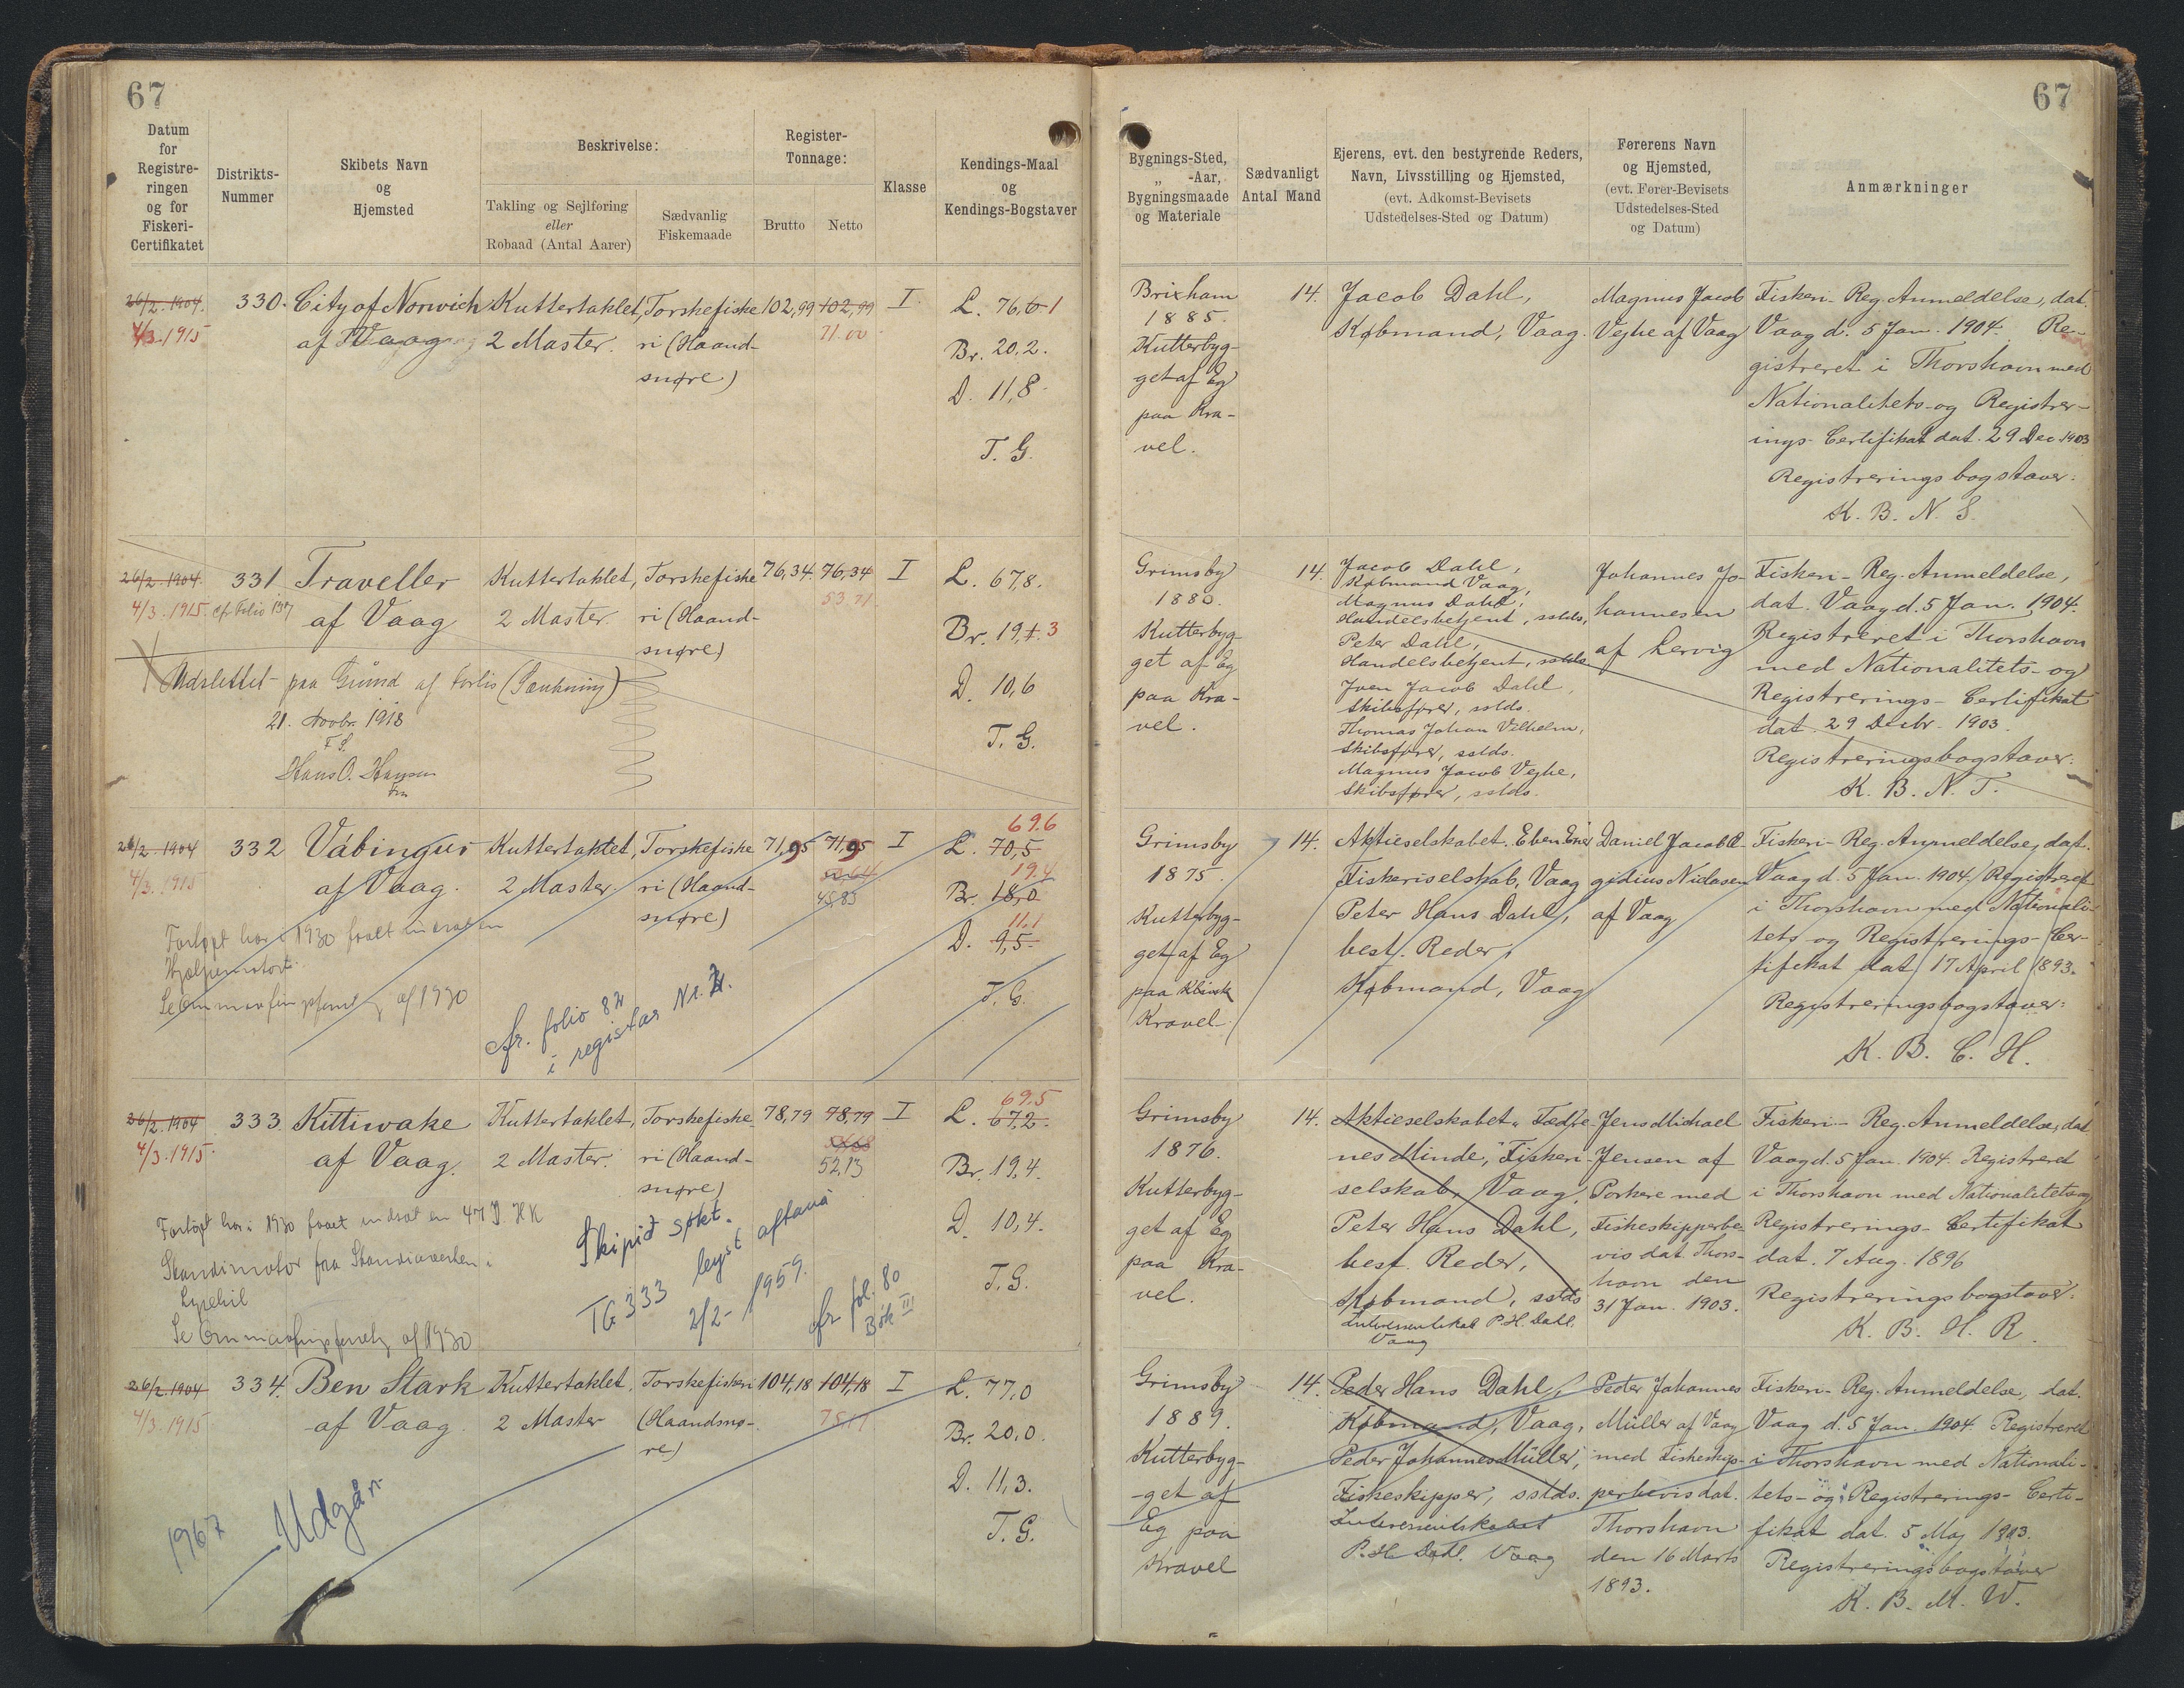 67
67
Datum
for
Registre-
ringen
og for
Fiskeri-
Certifikatet
Distrikts-
Nummer
Skibets Navn
og
Hjemsted
Beskrivelse:
Takling og Sejlføring
eller
Robaad (Antal Aarer)
Sædvanlig
Fiskemaade
Register-
Tonnage:
Brutto
Netto
Klasse
Kendings-Maal
og
Kendings-Bogstaver
Bygnings-Sted,
„ -Aar,
Bygningsmaade
og Materiale
Sædvanligt
Antal Mand
Ejerens, evt. den bestyrende Reders,
Navn, Livsstilling og Hjemsted,
(evt. Adkomst-Bevisets
Udstedelses-Sted og Datum)
Førerens Navn
og Hjemsted,
(evt. Fører-Bevisets
Udstedelses-Sted
og Datum)
Anmærkninger
26/2. 1904.
4/3. 1915
330.
City of Norwich
af Vaag
Kuttertaklet,
2 Master.
Torskefiske
ri (Haand-
snøre)
102,99
102,99
71.00
I
L. 76,0 1
Br. 20,2.
D. 11,8
T. G.
Brixham
1885.
Kutterbyg-
get af Eg
paa Kra-
vel.
14.
Jacob Dahl,
Købmand, Vaag.
Magnus Jacob
Vejhe af Vaag
Fiskeri-Reg. Anmeldelse, dat.
Vaag d. 5 Jan. 1904. Re-
gistreret i Thorshavn med
Nationalitets- og Registrer-
ings-Certifikat dat. 29 Dec 1903
Registreringsbogstaver:
K. B. N. S.
26/2. 1904.
4/3. 1915. cfr. Folio 137
331.
Traveller
af Vaag
Kuttertaklet,
2 Master.
Torskefiske
ri (Haand-
snøre)
76,34.
76,34
53.71
I
L. 67,8.
Br. 19,4. 3
D. 10,6
T. G.
Udslettet paa Grund af Forlis (Sænkning)
21. Novbr. 1918
F. S.
Hans O. Hansen
Fm
Grimsby
1880.
Kutterbyg-
get af Eg
paa Kra-
vel.
14.
Jacob Dahl,
Købmand Vaag,
Magnus Dahl,
Handelsbetjent, sstds,
Peter Dahl,
Handelsbetjent, sstds
Jven Jacob Dahl,
Skibsfører, sstds.
Thomas Johan Vilhelm,
Skibsfører, sstds.
Magnus Jacob Vejhe,
Skibsfører, sstds.
Johannes Jo-
hannesen
af Lervig
Fiskeri-Reg. Anmeldelse,
dat. Vaag d. 5 Jan. 1904.
Registreret i Thorshavn
med Nationalitets- og
Registrerings-Certifikat
dat. 29 Decbr. 1903.
Registreringsbogstaver:
K. B. N. T.
26/2. 1904
4/3. 1915
332
Vabingus
af Vaag.
Kuttertaklet,
2 Master.
Torskefiske
ri (Haand-
snøre)
71,95
71,95
45,83
I
69.6
L. 70,5
19.4
Br. 18,0
11.1
D. 9,5
T. G.
Fartøjet har i 1930 faaet indsat en
Hjælpemotor.
Se Ommaaling af 1930
cfr. folio 82
i register Nr. 2.
Grimsby
1875.
Kutterbyg-
get af Eg
paa Klink
Kravel.
14.
Aktieselskabet Eben Ezer
Fiskeriselskab, Vaag
Peter Hans Dahl,
best. Reder,
Købmand, Vaag
Daniel Jacob E-
gidius Niclasen
af Vaag
Fiskeri-Reg. Anmeldelse, dat.
Vaag d. 5 Jan. 1904. Registreret
i Thorshavn med Nationali-
tets- og Registrerings-Cer-
tifikat dat. 17 April 1893.
Registreringsbogstaver:
K. B. C. H.
26/2. 1904
4/3. 1915.
333.
Kittiwake
af Vaag.
Kuttertaklet,
2 Master.
Torskefiske
ri (Haand-
snøre)
78,79
78,79
52,13
I
69.5
L. 67,2.
Br. 19,4.
D. 10,4.
T. G.
Fartøjet har i 1930 faaet indsat en 47 HK
Skandiamotor fra Skandiaverken i
Lysekil
Se Ommaaling af 1930
Skipið søkt.
TG 333 legst aftaná
2/2- 1959.
cfr. fol. 80
Bók III
Grimsby
1876.
Kutterbyg-
get af Eg
paa Kra-
vel.
14.
Aktieselskabet „Fædre-
nes Minde", Fiskeri-
selskab, Vaag,
Peter Hans Dahl,
best. Reder,
Købmand, sstds
Interessentskab P. H. Dahl.
Vaag
Jens Michael
Jensen af
Porkere med
Fiskeskipperbe-
vis dat. Thors-
havn den
31 Jan. 1903.
Fiskeri-Reg. Anmeldelse, dat
Vaag d. 5 Jan. 1904. Registreret
i Thorshavn med Nationalitets og
Registrerings-Certifikat
dat. 7 Aug. 1896
Registreringsbogstaver:
K. B. H. R.
26/2. 1904
4/3. 1915
334.
Ben Stark
af Vaag
Kuttertaklet,
2 Master
Torskefiskeri
(Haandsnø-
re)
104,18
104,18
I
L. 77,0
Br. 20,0.
D. 11,3.
T. G.
1967
Udgår
Grimsby
1889.
Kutterbyg-
get af
Eg paa
Kravel
14.
Peder Hans Dahl,
Købmand, Vaag,
Peder Johannes Müller,
Fiskeskipper, sstds.
Interessentskabet
P. H. Dahl. Vaag
Peder Johannes
Müller af Vaag
med Fiskeskip-
perbevis dat.
Thorshavn
den 16 Marts
1893.
Fiskeri-Reg. Anmeldelse, dat.
Vaag d. 5 Jan. 1904. Registreret
i Thorshavn med Nationali-
tets- og Registrerings-Certi-
fikat dat. 5 Maj 1903.
Registreringsbogstaver
K. B. M. W.